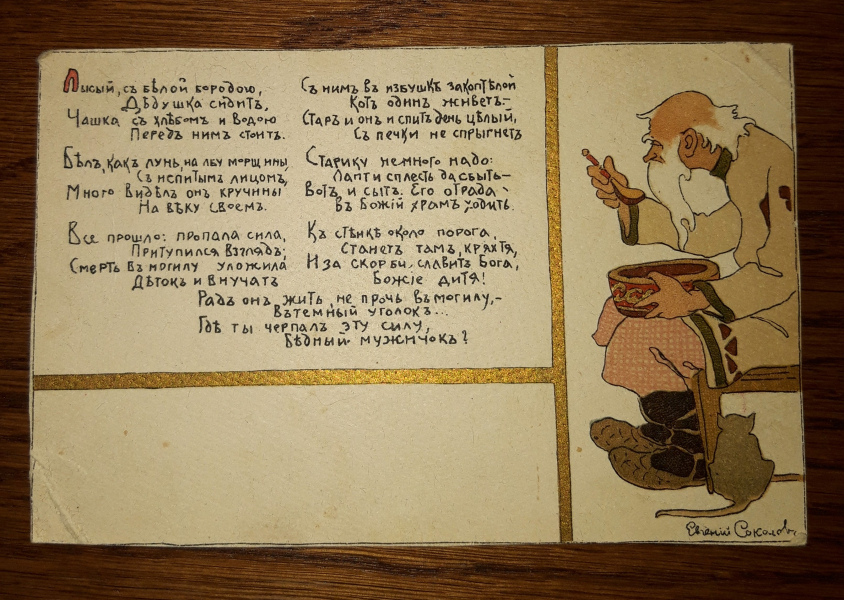 Лысый, съ бѣлой бородою,
Дѣдушка сидитъ,
Чашка съ хлѣбомъ и водою
Передъ нимъ стоитъ.
Бѣлъ, какъ лунь, на лбу морщины,
Съ испитымъ лицомъ,
Много видѣлъ онъ кручины
На вѣку своемъ.
Все прошло: пропала сила,
Притупился взглядъ;
Смерть въ могилу уложила
Дѣтокъ и внучатъ
Съ нимъ въ избушкѣ закоптѣлой
Котъ одинъ живетъ–
Старъ и онъ и спитъ день цѣлый,
Съ печки не спрыгнетъ
Старику немного надо:
Лапти сплесть да сбыть–
Вотъ и сытъ. Его отрада
Въ Божій храмъ ходить.
Къ стѣнкѣ около порога,
Станетъ тамъ, кряхтя,
И за скорби славитъ Бога,
Божіе дитя!
Радъ онъ жить, не прочь въ могилу,–
Въ темный уголокъ...
Гдѣ ты черпалъ эту силу,
Бѣдный мужичокъ?
Евгеній Соколовъ